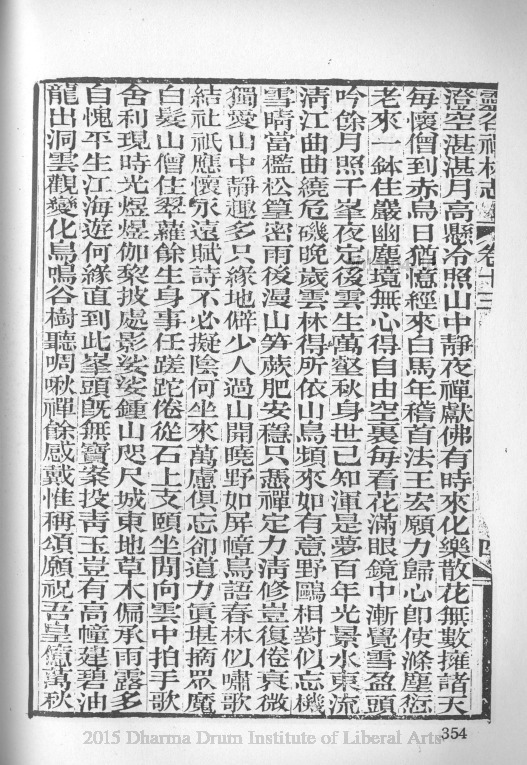 靈谷禪林志 卷十三 四
澄空湛湛月高懸冷照山中靜夜禪獻佛有時來化樂散花無數擁諸天
每懷僧到赤烏日猶憶經來白馬年稽首法王宏願力歸心卽使滌塵愆
老來一鉢住巖幽塵境無心得自由空裏每看花滿眼鏡中漸覺雪盈頭
吟餘月照千峯夜定後雲生萬壑秋身世已知渾是夢百年光景水東流
淸江曲曲繞危磯晚歲雲林得所依山鳥頻來如有意野鷗相對似忘機
雪晴當檻松篁密雨後漫山筍蕨肥安穩只憑禪定力淸修豈復倦衰微
獨愛山中靜趣多只緣地僻少人過山開曉野如屏幛鳥語春林似嘯歌
結社祇應懷永遠賦詩不必擬陰何坐來萬慮俱忘卻道力眞堪摘眾魔
白髮山僧住翠蘿餘生身事任蹉跎倦從石上支頤坐閒向雲中拍手歌
舍利現時光煜煜伽黎披處影娑娑鍾山咫尺城東地草木偏承雨露多
自愧平生江海遊何緣直到此峯頭旣無寶案投靑玉豈有高幢建碧油
龍出洞雲觀變化鳥鳴谷樹聽啁啾禪餘感戴惟稱頌願祝吾皇億萬秋
354
2015 Dharma Drum Institute of Liberal Arts